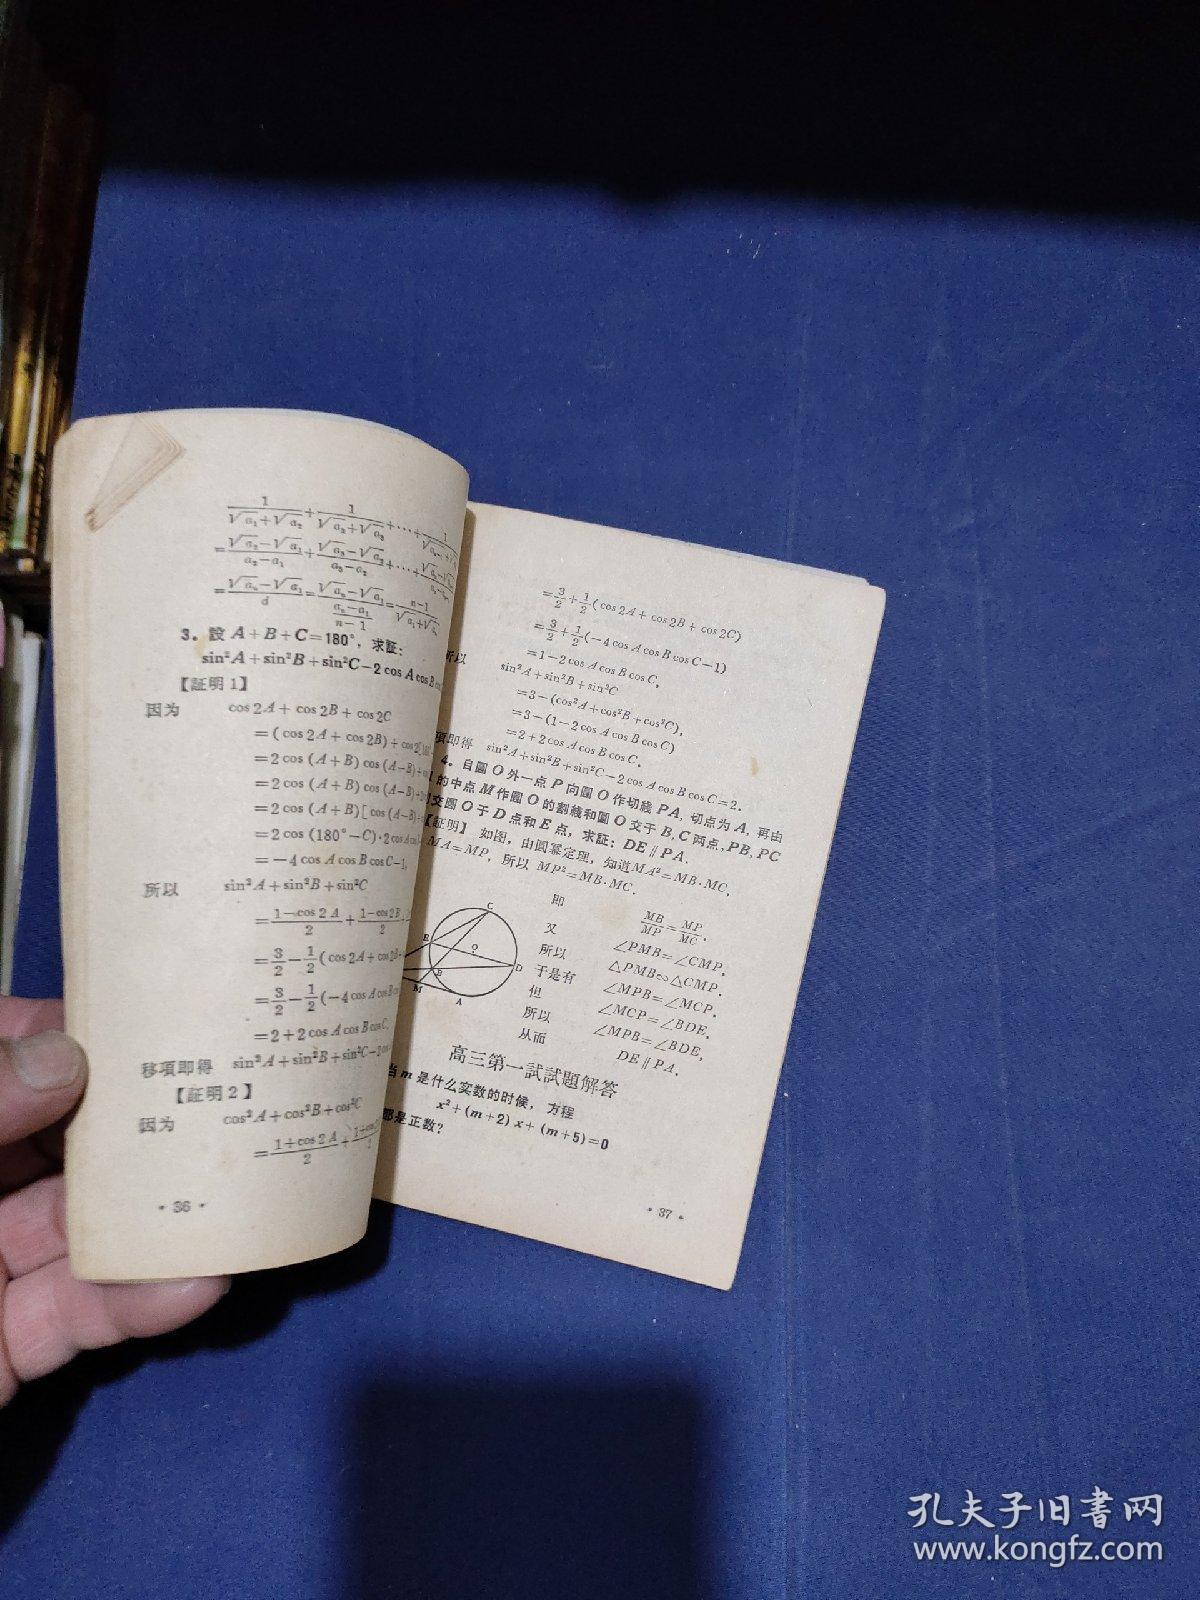 1/(√a₁+√a₂)+1/(√a₂+√a₃)+⋯+
=(√a₂−√a₁)/(a₂−a₁)+(√a₃−√a₂)/(a₃−a₂)+⋯+
=(√aₙ−√a₁)/d=(√aₙ−√a₁)/((aₙ−a₁)/(n−1))=(n−1)/(√a₁+√aₙ)
3．設 A+B+C=180°，求証：
sin²A+sin²B+sin²C−2cosAcosB
【証明1】
因为 cos2A+cos2B+cos2C
=(cos2A+cos2B)+cos2
=2cos(A+B)cos(A−B)+
=2cos(A+B)cos(A−B)+
=2cos(A+B)[cos(A−B)+
=2cos(180°−C)·2cosA
=−4cosAcosBcosC−1,
所以 sin²A+sin²B+sin²C
=(1−cos2A)/2+(1−cos2B)/2+
=3/2−1/2(cos2A+cos2B+
=3/2−1/2(−4cosAcosB
=2+2cosAcosBcosC,
移項即得 sin²A+sin²B+sin²C−2cos
【証明2】
因为 cos²A+cos²B+cos²C
=(1+cos2A)/2+
·36·
=3/2+1/2(cos2A+cos2B+cos2C)
=3/2+1/2(−4cosAcosBcosC−1)
=1−2cosAcosBcosC,
所以 sin²A+sin²B+sin²C
=3−(cos²A+cos²B+cos²C),
=3−(1−2cosAcosBcosC)
=2+2cosAcosBcosC.
項即得 sin²A+sin²B+sin²C−2cosAcosBcosC=2.
4．自圓O外一点P向圓O作切綫PA，切点为A，再由
的中点M作圓O的割綫和圓O交于B,C两点，PB,PC
交圓O于D点和E点，求証：DE∥PA.
【証明】 如图，由圓冪定理，知道MA²=MB·MC,
MA=MP，所以 MP²=MB·MC.
即 MB/MP=MP/MC.
又 ∠PMB=∠CMP,
所以 △PMB∽△CMP.
于是有 ∠MPB=∠MCP,
但 ∠MCP=∠BDE,
所以 ∠MPB=∠BDE,
从而 DE∥PA.
C
E
O
B
D
M
A
高三第一試試題解答
当m是什么实数的时候，方程
x²+(m+2)x+(m+5)=0
都是正数？
·37·
孔夫子旧书网
www.kongfz.com